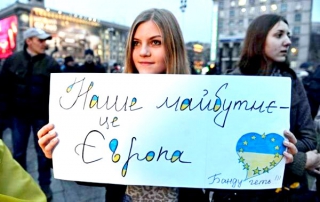 Наше майбутнє-
це
Європа
Банду геть!!!